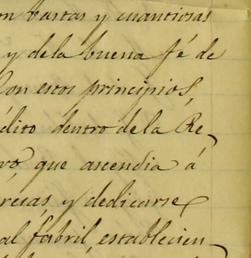 n vastas y cuantiosas
y de la buena fé de
Con estos principios,
édito dentro de la Re-
vo, que ascendia á
resas y dedicarse
al fabril, establecien-